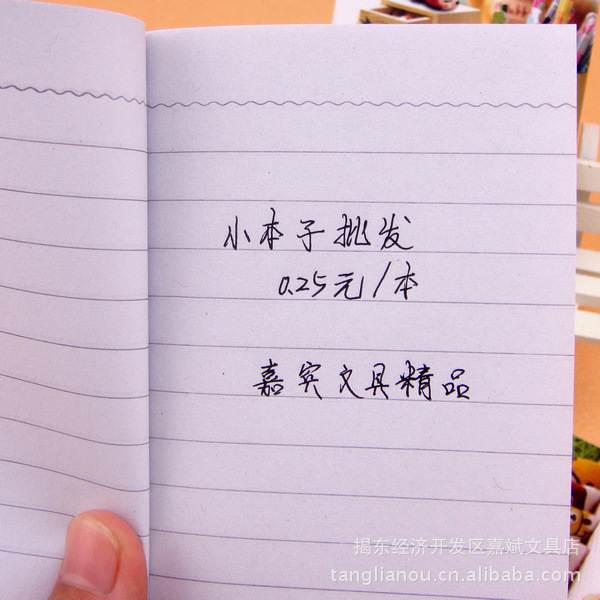 小本子批发
0.25元/本
嘉宾文具精品
揭东经济开发区嘉斌文具店
tanglianou.cn.alibaba.com